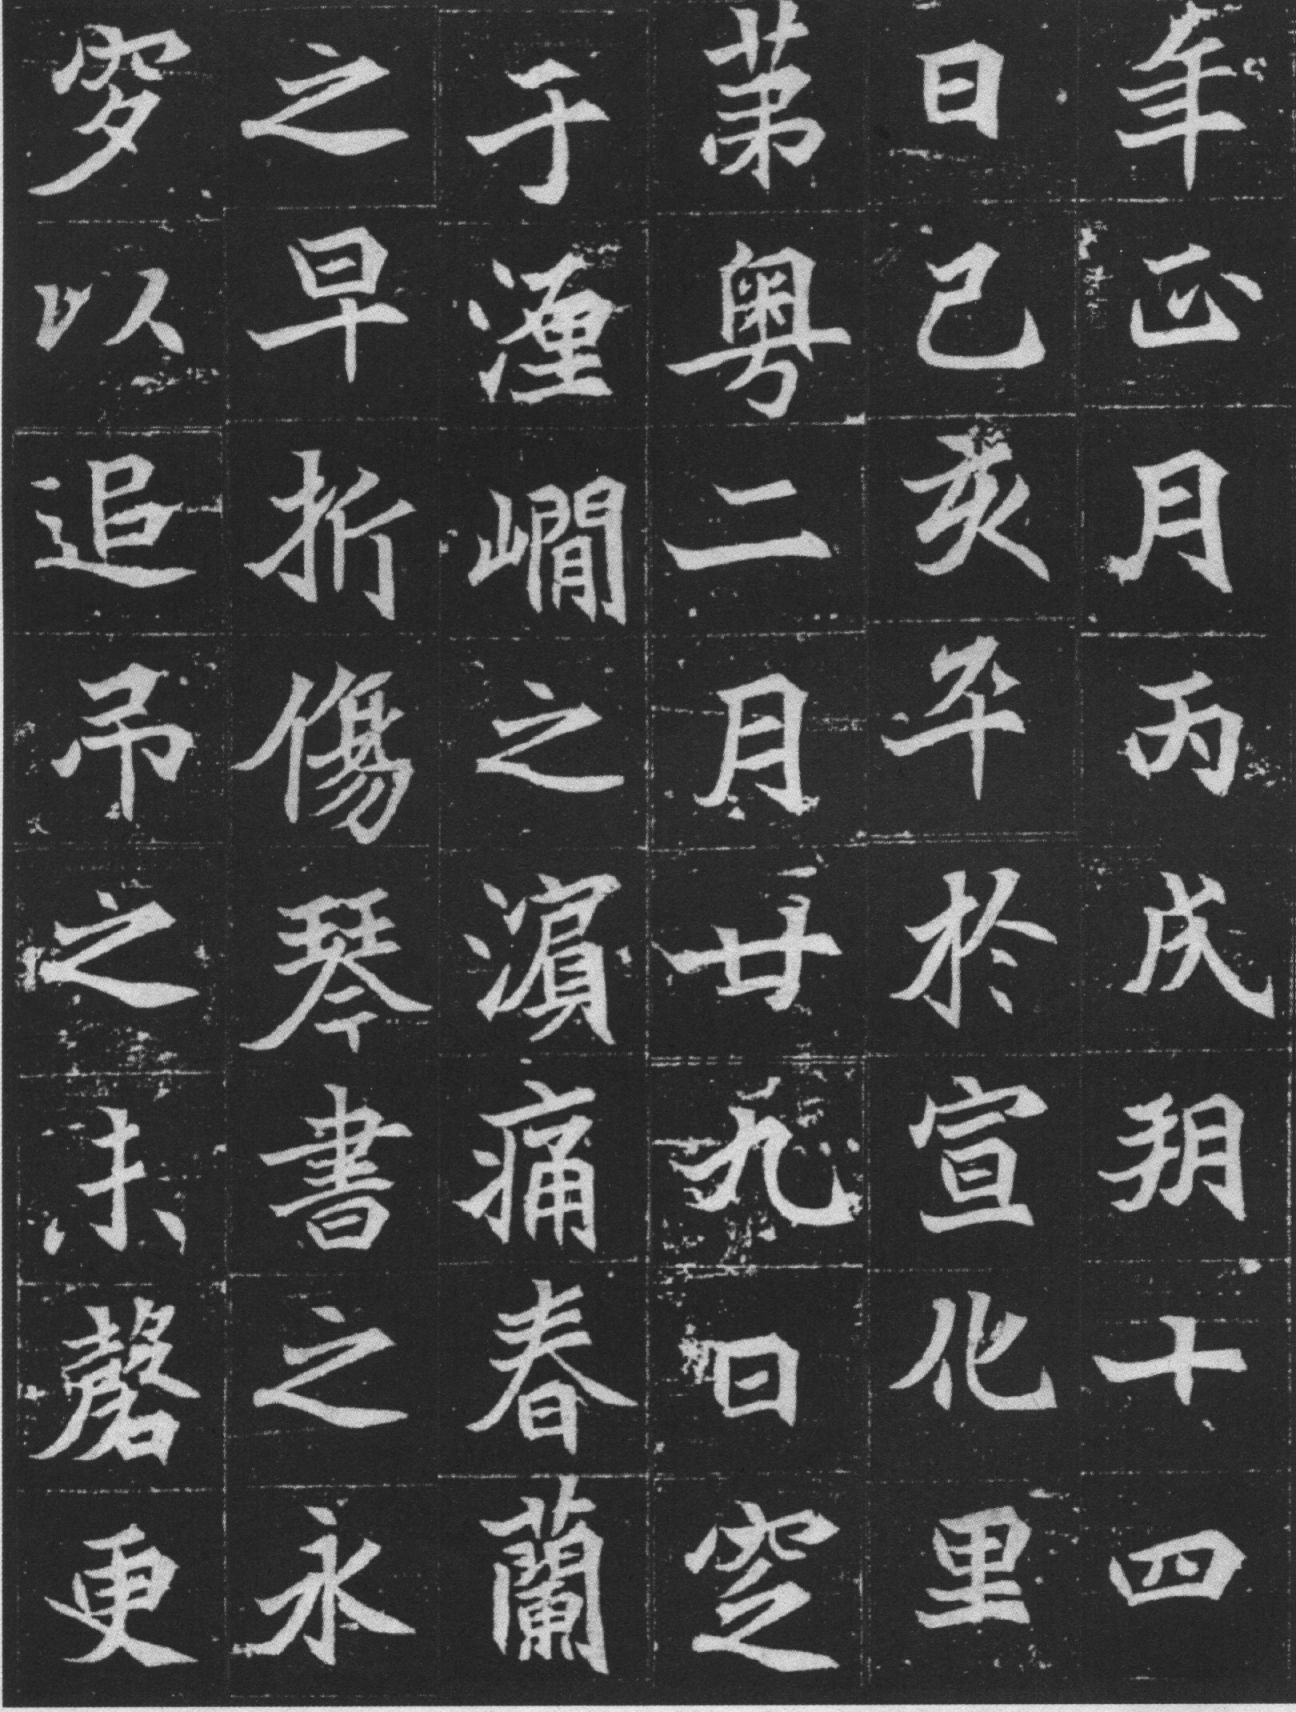 年正月丙戌朔十四
日己亥卒於宣化里
苐粤二月廿九日窆
于湹㵎之濵痛春蘭
之早折傷琴書之永
穸以追吊之未罄更